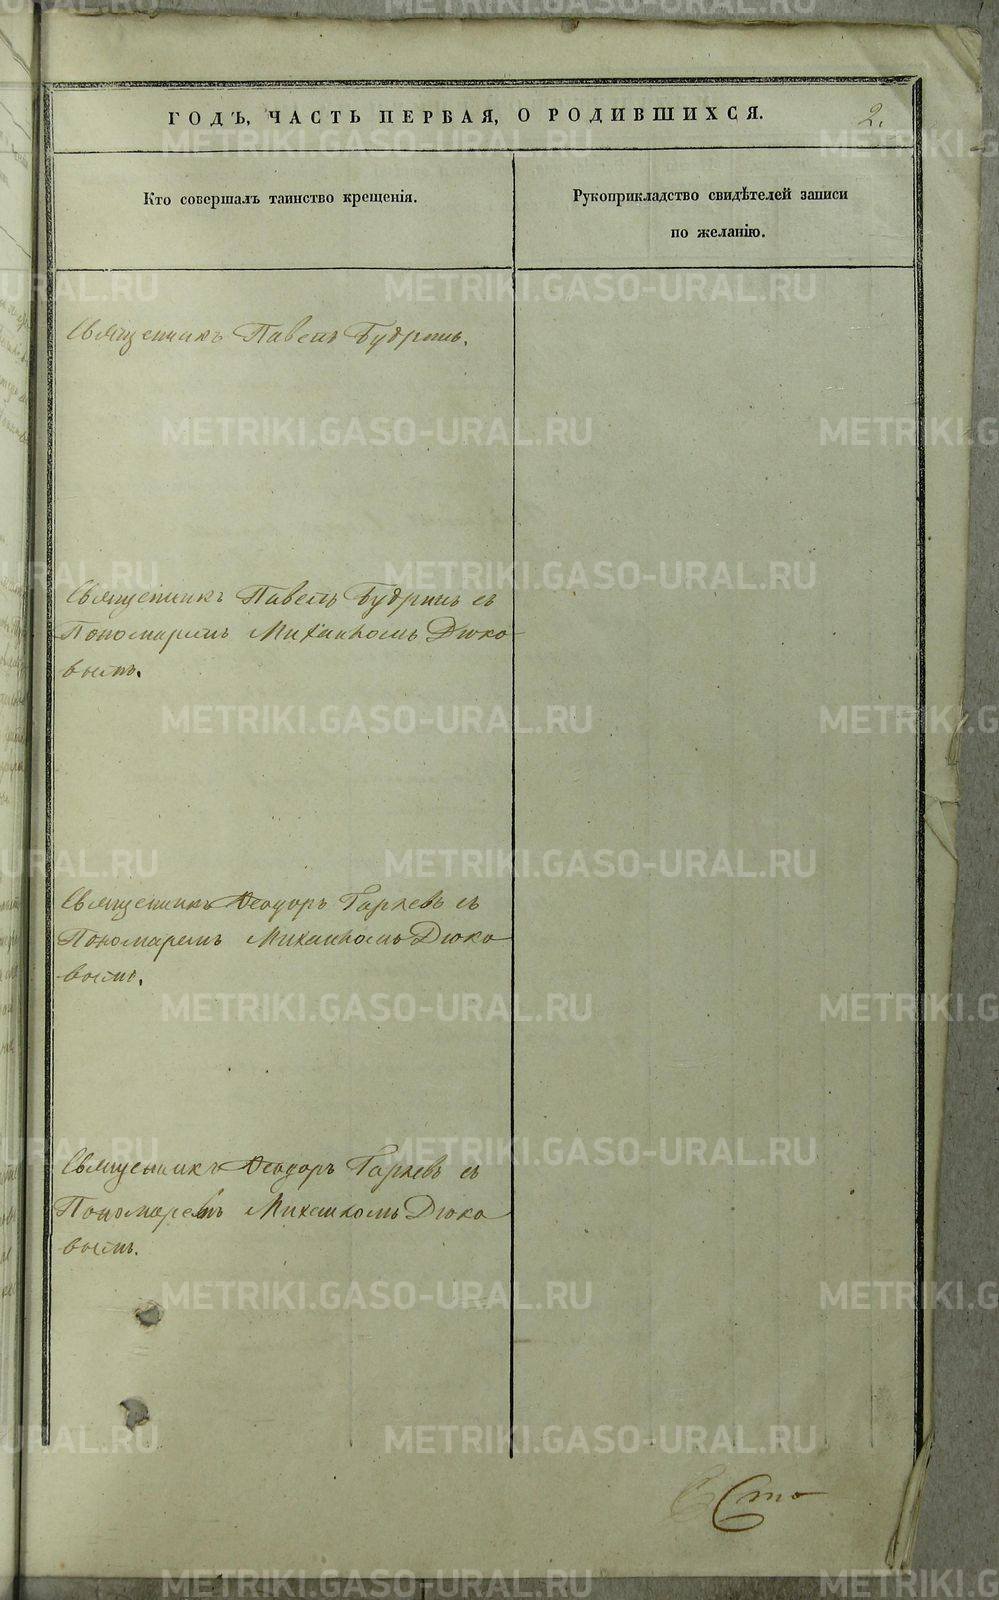 ГОДЪ, ЧАСТЬ ПЕРВАЯ, О РОДИВШИХСЯ.
2.
Кто совершалъ таинство крещенія.
Рукоприкладство свидѣтелей записи
по желанію.
Священникъ Павелъ Будринъ.
Священникъ Павелъ Будринъ съ
Пономаремъ Михаиломъ Дюко-
вымъ.
Священникъ Ѳеодоръ Горяевъ съ
Пономаремъ Михаиломъ Дюко
вымъ.
Священникъ Ѳеодоръ Горяевъ съ
Пономаремъ Михаиломъ Дюко
вымъ.
Сто
METRIKI.GASO-URAL.RU